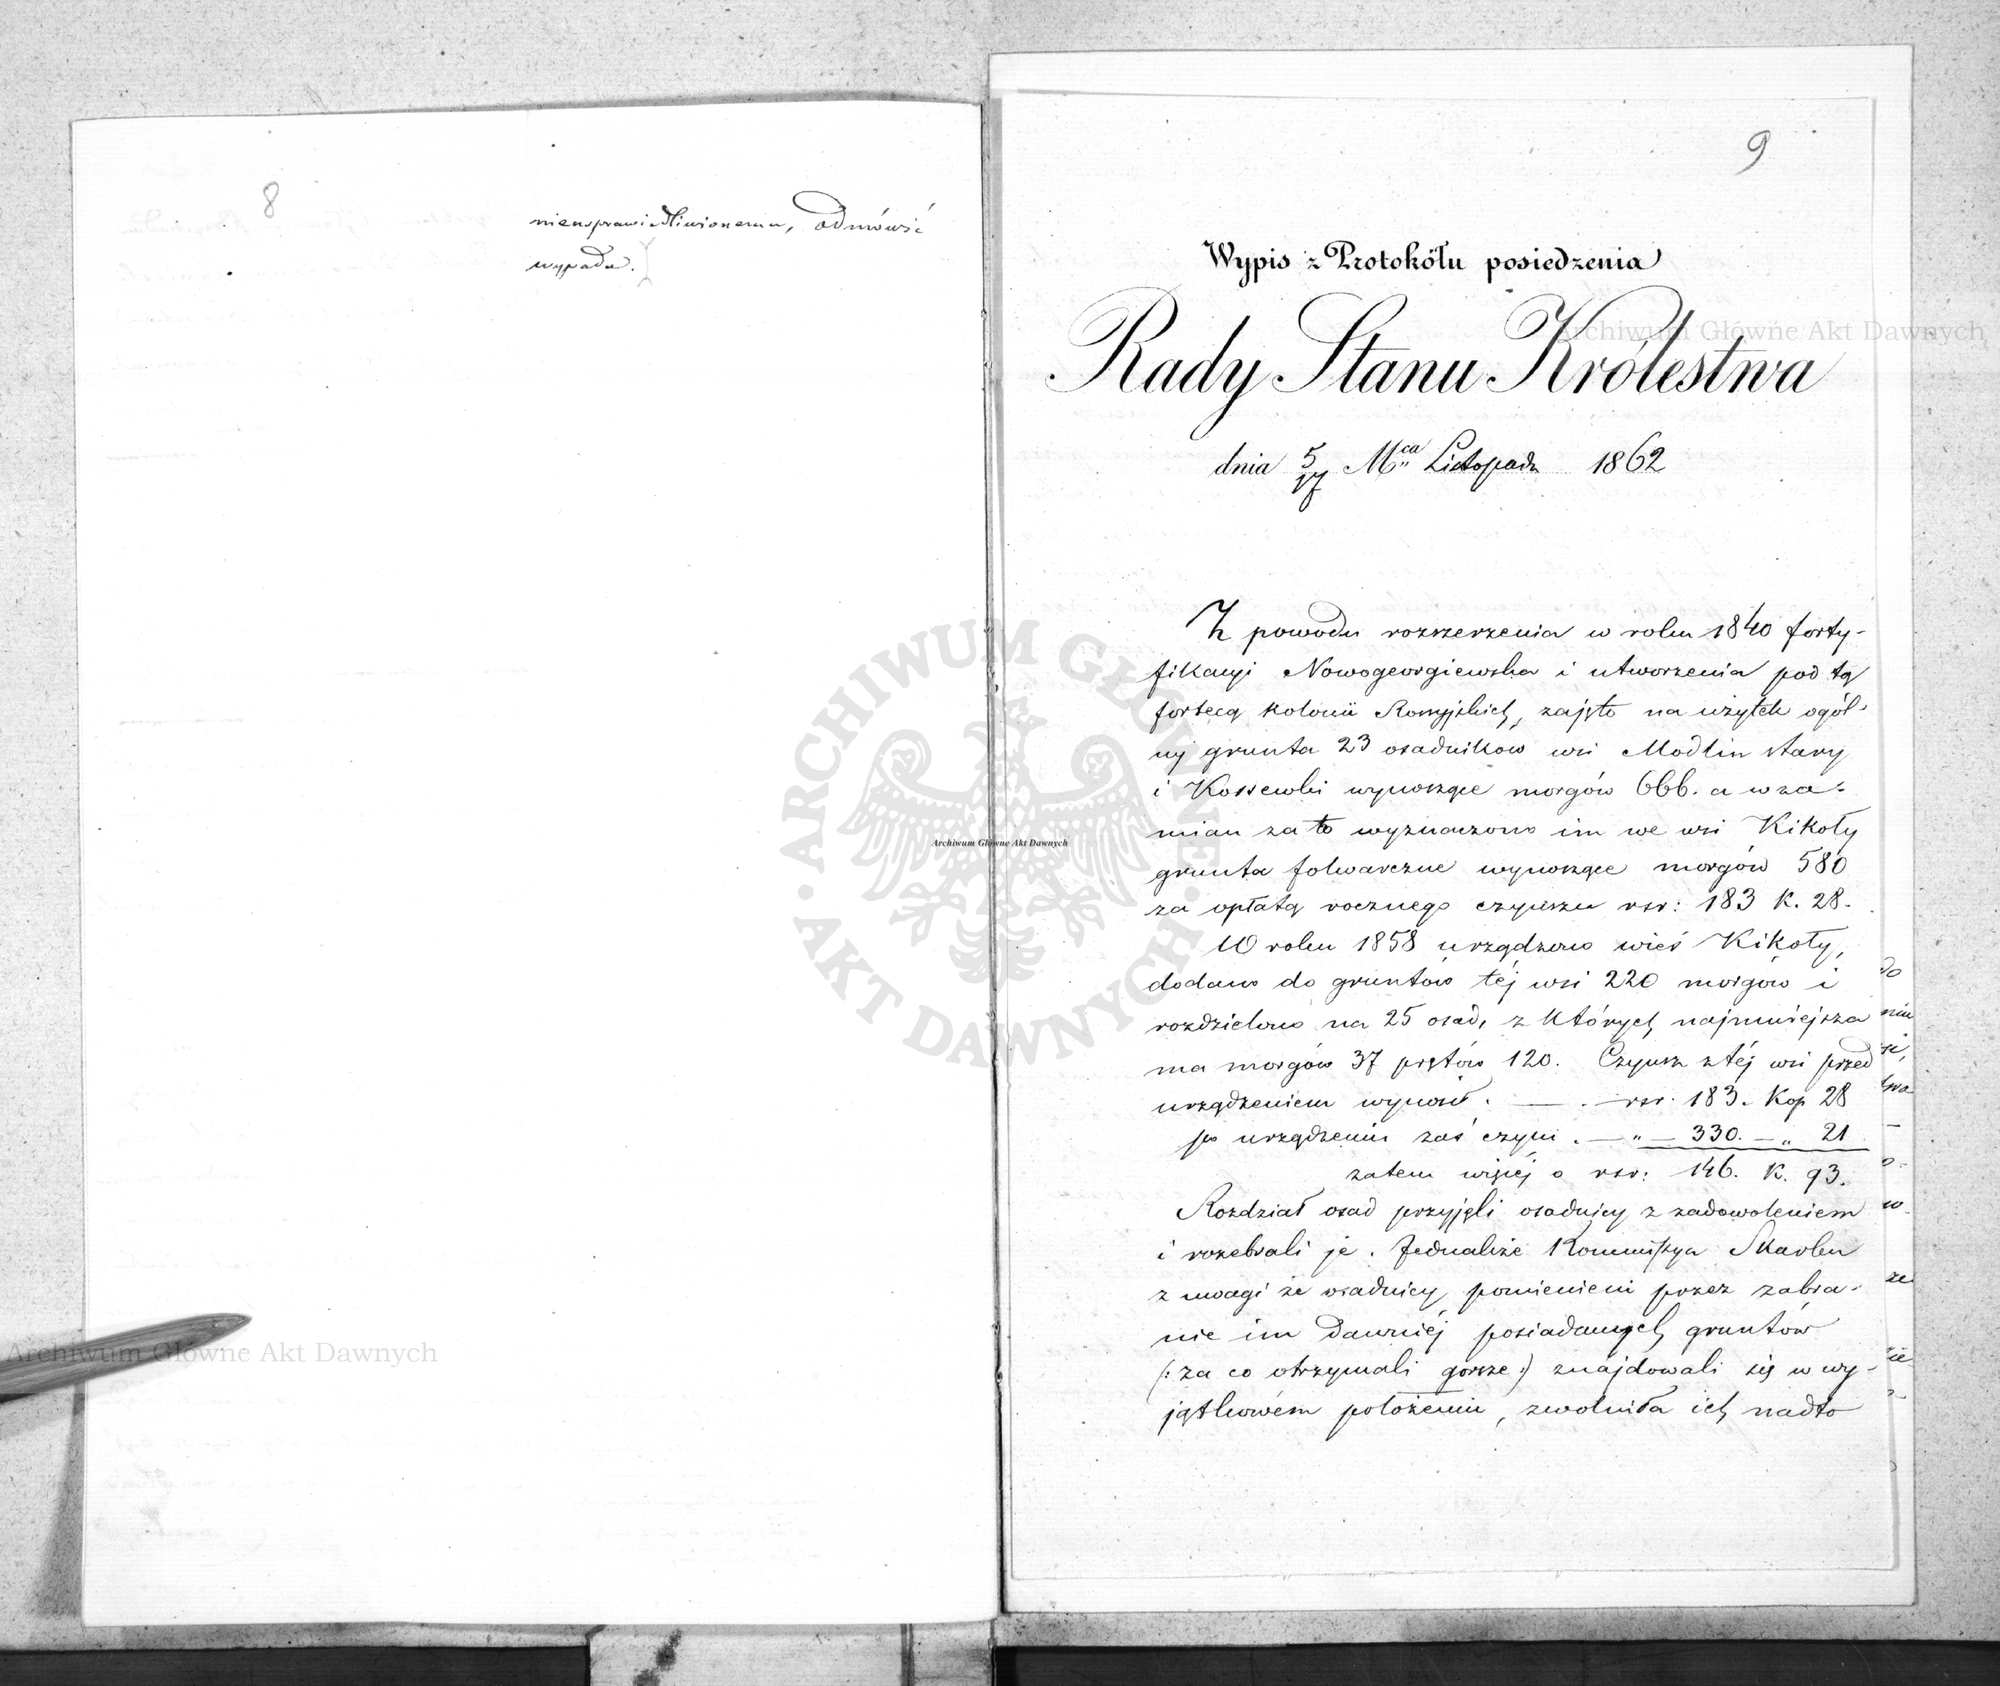 8
nieusprawiedliwionemu, odmówić
wypada.
9
Wypis z Protokółu posiedzenia
Rady Stanu Królestwa
dnia 5/17 Mca Listopada 1862
Z powodu rozszerzenia w roku 1840 forty-
fikacyi Nowogeorgiewska i utworzenia pod tą
fortecą kolonii Rossyjskich, zajęto na użytek ogól-
ny grunta 23 osadników wsi Modlin stary
i Kossewki wynoszące morgów 666. a w za-
mian za to wyznaczono im we wsi Kikoły
grunta folwarczne wynoszące morgów 580
za opłatą rocznego czynszu rsr: 183 K. 28.
W roku 1858 urządzono wieś Kikoły,
dodano do gruntów téj wsi 220 morgów i
rozdzielono na 25 osad, z których najmniejsza
ma morgów 37 prętów 120. Czynsz z téj wsi przed
urządzeniem wynosił . — . — rsr. 183. Kop 28
po urządzeniu zaś czyni . — " — 330. — " 21
zatem więcéj o rsr: 146. K. 93.
Rozdział osad przyjęli osadnicy z zadowoleniem
i rozebrali je. Jednakże Kommissya Skarbu
z uwagi że osadnicy pomienieni przez zabra-
nie im dawniéj posiadanych gruntów
(: za co otrzymali gorsze :) znajdowali się w wy-
jątkowém położeniu, zwolniła ich nadto
Archiwum Główne Akt Dawnych
Archiwum Główne Akt Dawnych
Archiwum Główne Akt Dawnych
ARCHIWUM GŁÓWNE · AKT DAWNYCH ·